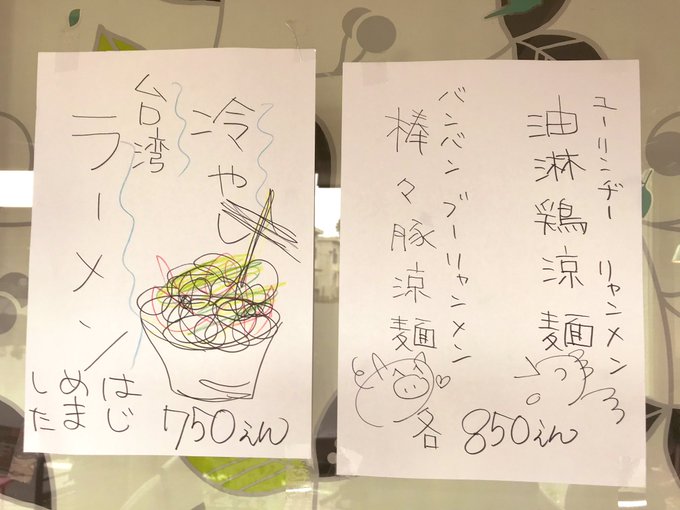 冷やし
台湾
ラーメン
はじ
めま
した
750えん
ユーリンヂー リャンメン
油淋鶏涼麺
バンバンブーリャンメン
棒々豚涼麺
各 850えん